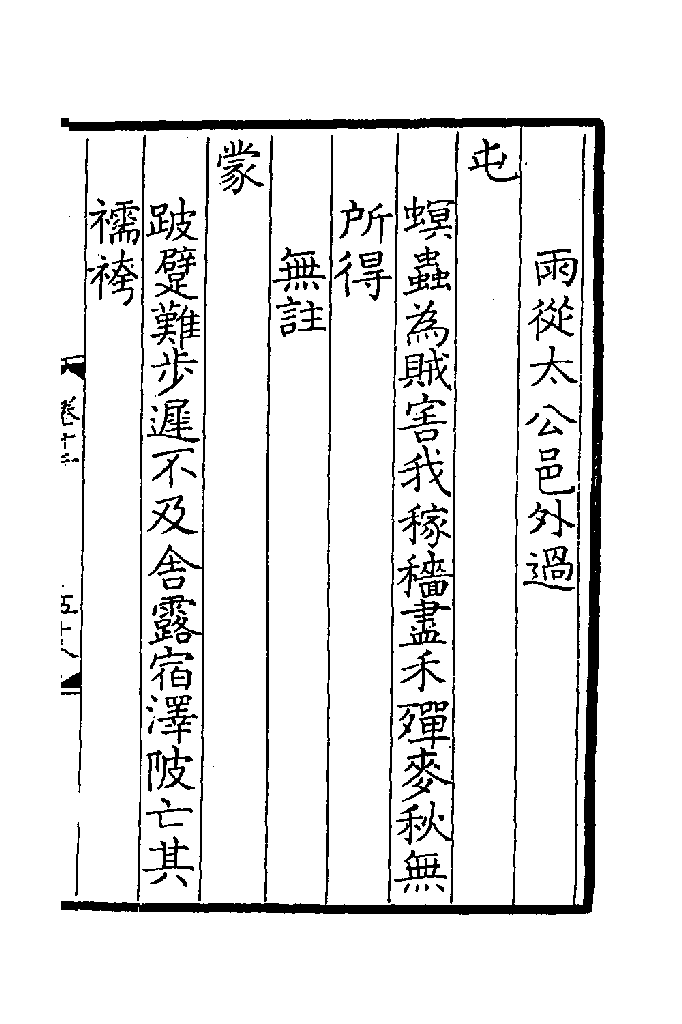 雨從太公邑外過
屯
螟蟲為賊害我稼穡盡禾殫麥秋無
所得
無註
蒙
跛躄難步遲不及舍露宿澤陂亡其
襦袴
卷十三
五十八